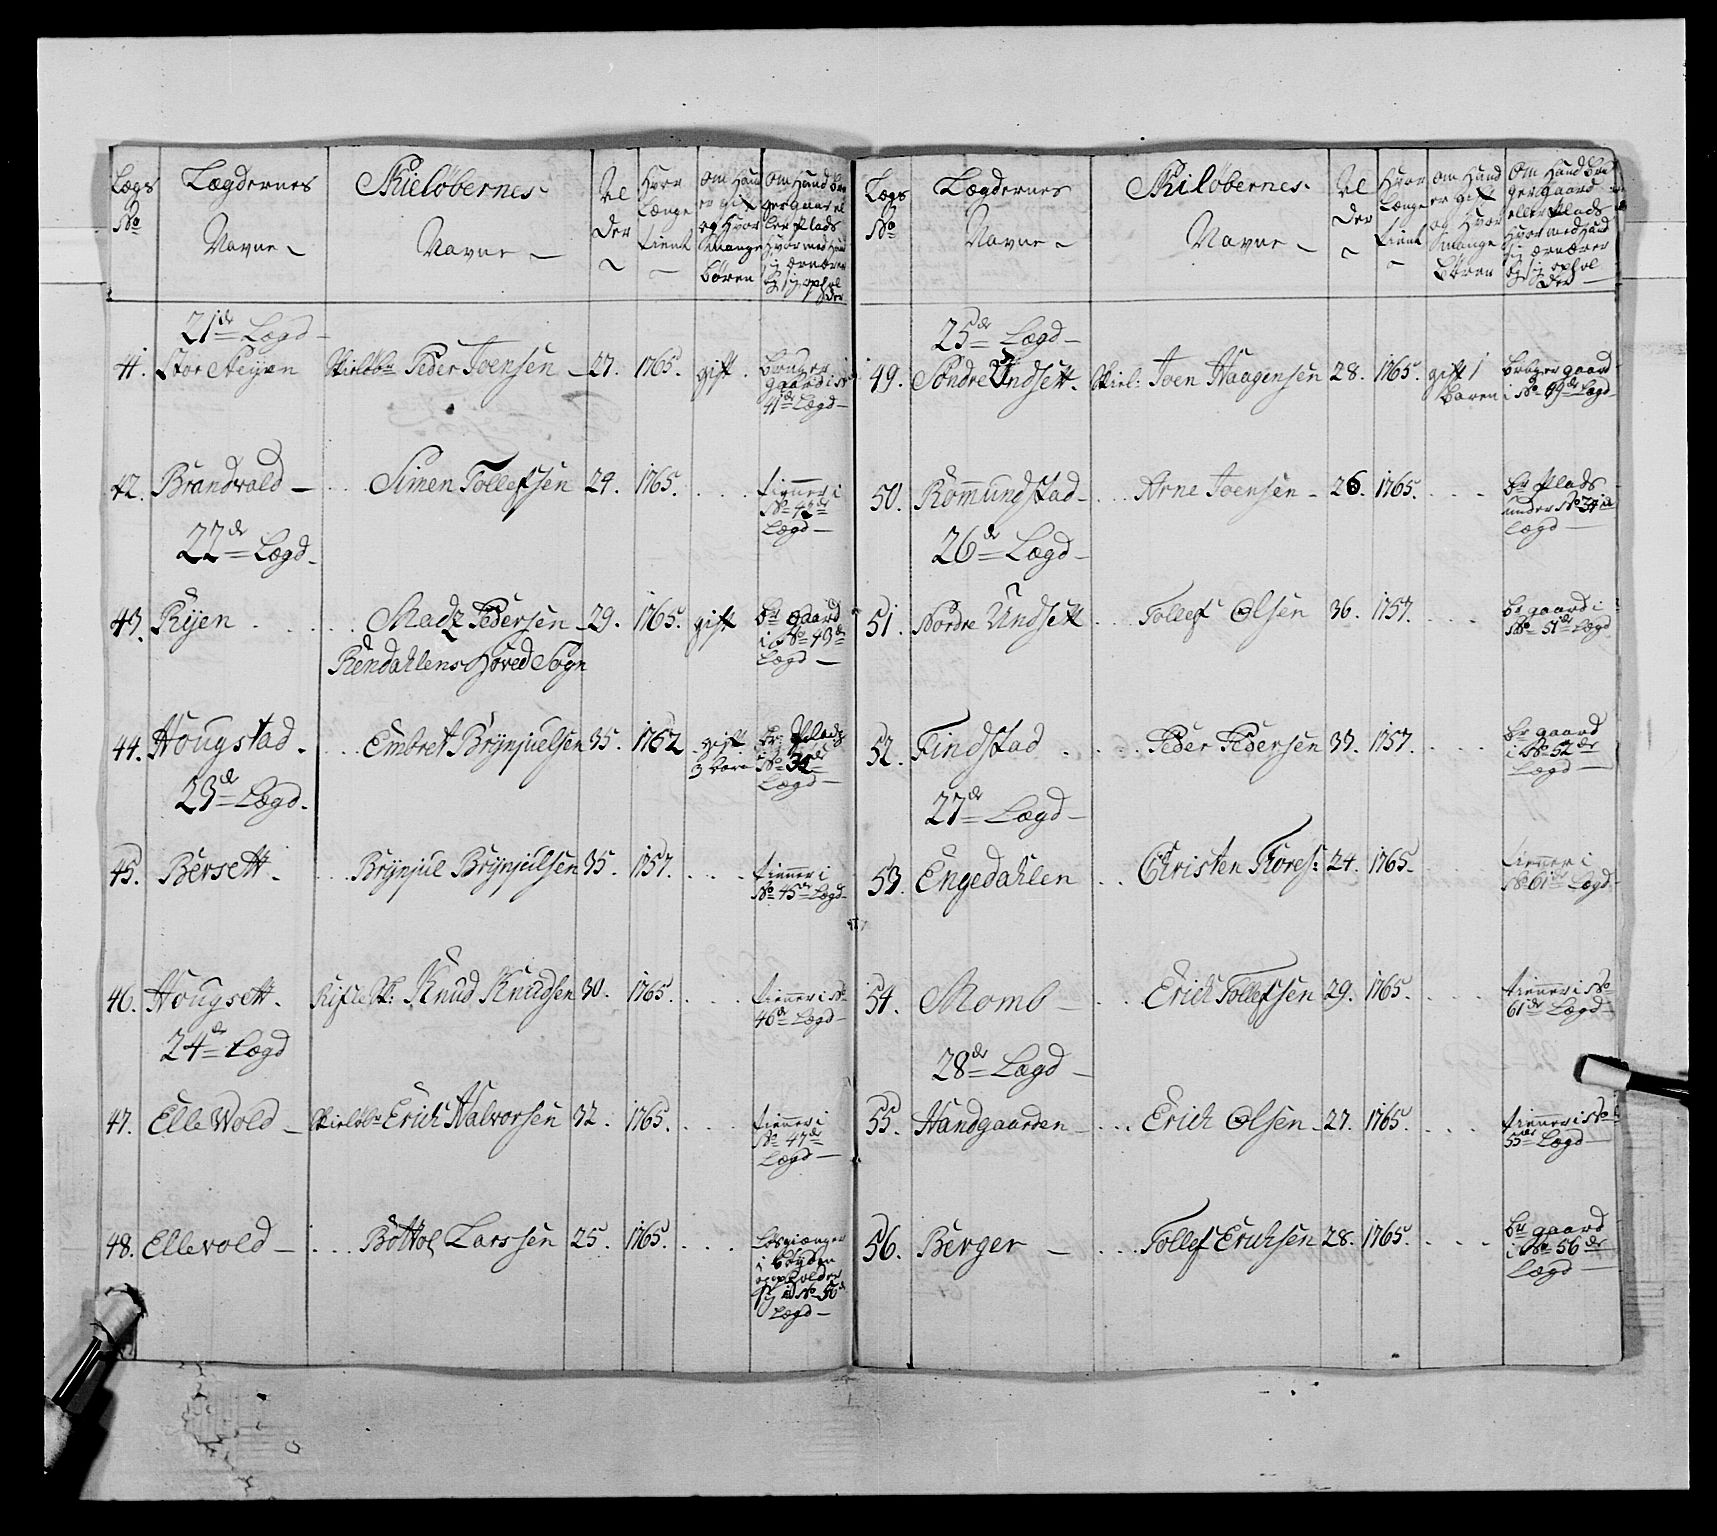 Lægs No
Lægdernes Navne
Skieløbernes Navne
Alder
Hvor Længe tient
Om Hand er gift og Hvor Mange Børen
Om Hand bruger gaard eller Plads Hvor med Hand sig ærnærer og sig opholder
21de Lægd
41. Stor Steyen Skieløbr Peder Joensen 27. 1765. gift. bruger gaard i No 41de Lægd
42. Brandvold .... Simen Tollefsen 24. 1765. .... tienner i No 42de Lægd
22de Lægd
43. Ryen .... Madz Pedersen 29. 1765. gift br gaard i No 43de Lægd
Rendahlens Hoved Sogn
44. Hougstad .... Embret Brynjuelsen 35. 1752 gift 3 børe br: Plads No 34de Lægd
23de Lægd
45. Bersett .... Brynjul Brynjulsen 35. 1757. .... tienner i No 45de Lægd
46. Hougsett. Rifle Sk: Knud Knudsen 30. 1765. .... tienner i No 46de Lægd
24de Lægd
47. Elle Vold Skieløbr Erich Halvorsen 32. 1765. .... tienner i No 47de Lægd
48. Ellevold .... Bottol Larssen 25. 1765. .... Løsgiænger i bøyden opholder sig i No 50de Lægd
Lægs No
Lægdernes Navne
Skiløbernes Navne
Alder
Hvor Længe tient
Om Hand er gift og Hvor Mange Børen
Om Hand bruger gaard eller Plads Hvor med Hand sig ærnærer og sig opholder
25de Lægd
49. Søndre Undsett. Skiel: Joen Haagensen 28. 1765. gift 1 baren bruger gaard i No 49de Lægd
50. Rommundstad .... Arne Joensen 26. 1765. .... br Plads under No 34de Lægd
26de Lægd
51. Nordre Undsett ... Tollef Olsen 36. 1757. .... br gaard i No 51de Lægd
52. Findstad .... Peder Pedersen 33. 1757. .... br gaard i No 52de Lægd
27de Lægd
53. Engedahlen ... Christen Tores: 24. 1765. tienner i No 61de Lægd
54. Momb ... Erich Tollefsen 29. 1765. .... tienner i No 61de Lægd
28de Lægd
55. Handgaarden ... Erich Olsen 27. 1765. ... tienner i No 55de Lægd
56. Berger ... Tollef Erichsen 28. 1765. ... br gaard i No 56de Lægd